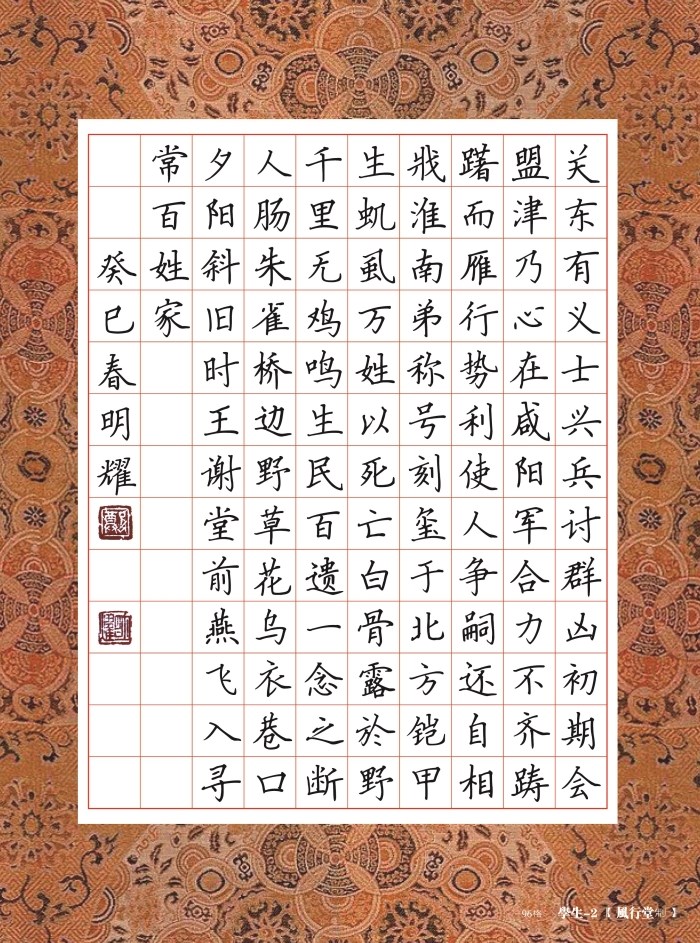 关东有义士兴兵讨群凶初期会
盟津乃心在咸阳军合力不齐踌
躇而雁行势利使人争嗣还自相
戕淮南弟称号刻玺于北方铠甲
生虮虱万姓以死亡白骨露於野
千里无鸡鸣生民百遗一念之断
人肠朱雀桥边野草花乌衣巷口
夕阳斜旧时王谢堂前燕飞入寻
常百姓家
癸巳春明耀
學生-2【風行堂制】